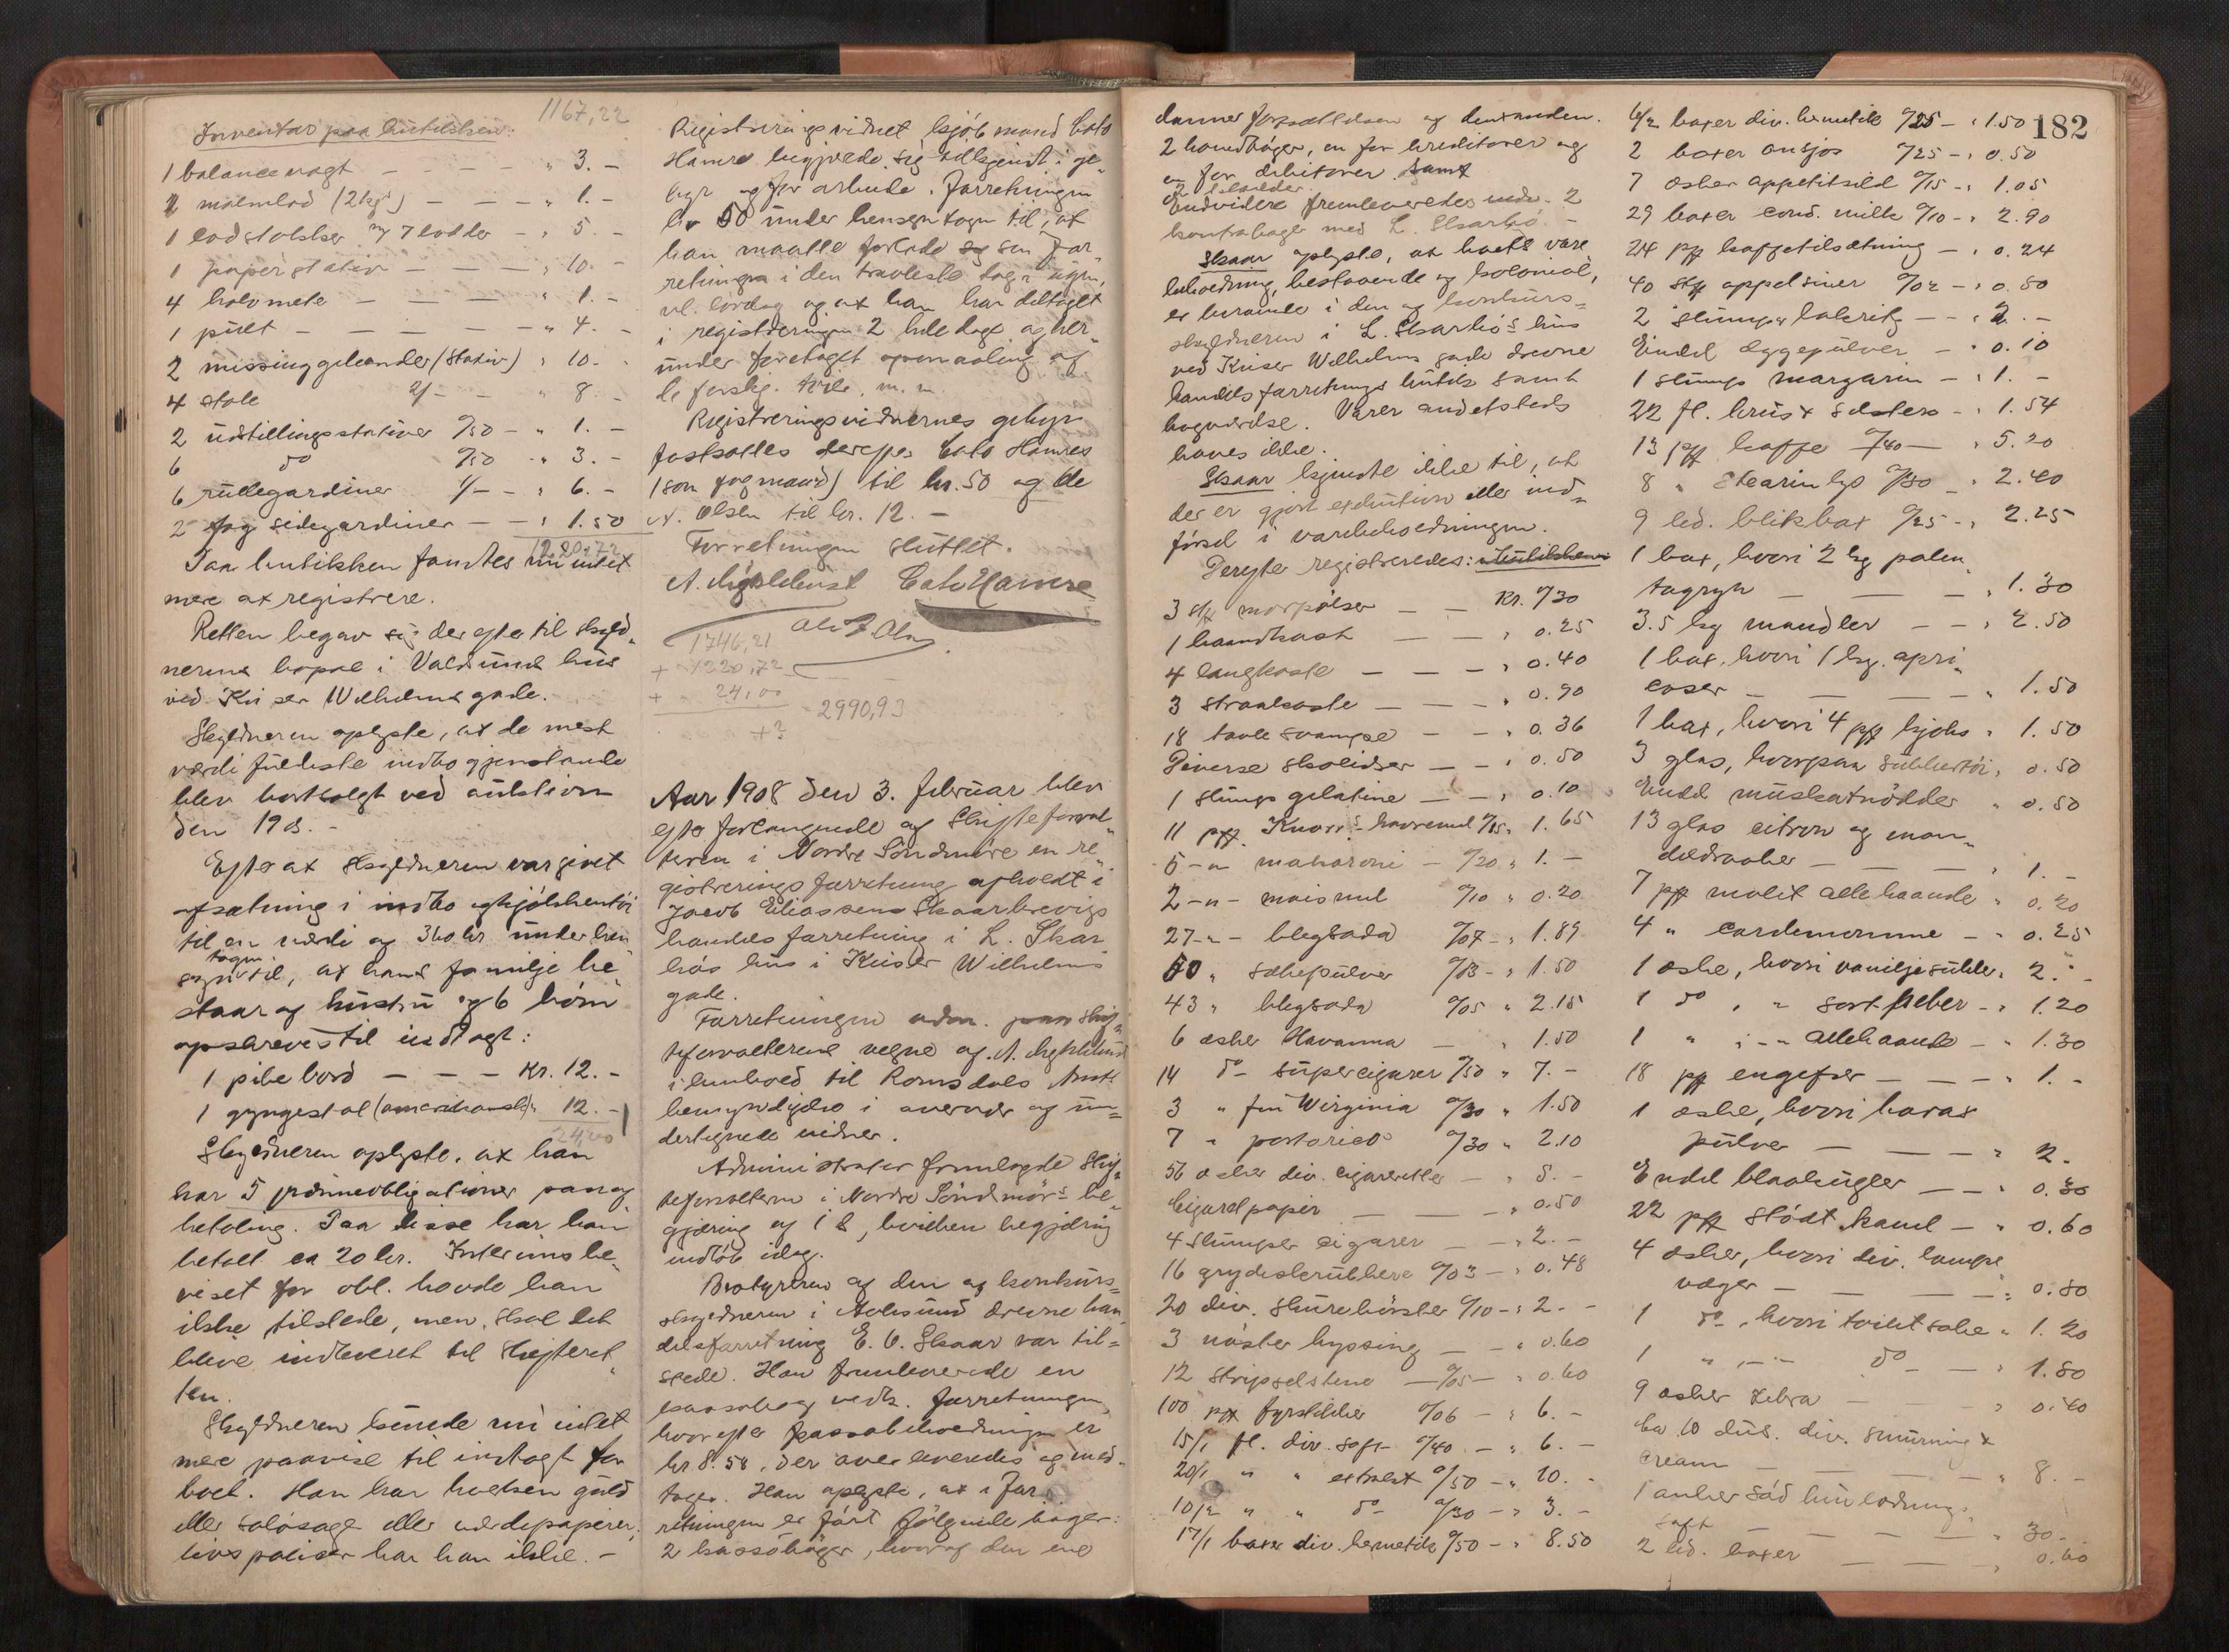 1167,22
Inventar paa butikken:
1 balancevagt - - - - " 3. -
2 malmlod (2 kg) - - - " 1. -
1 lodstokker m/ 7 lodder - " 5. -
1 papirstativ - - - " 10. -
4 halvmete - - - " 1. -
1 pult - - - - - " 4. -
2 missinggelænder (stativ) " 10. -
4 stole 2/- - " 8. -
2 udstillingsstativer º/50 - " 1. -
6 do º/50 - " 3. -
6 rullegardiner 1/- - " 6. -
2 fag sidegardiner - - " 1.50
1220,72
Paa butikken fandtes nu intet
mere at registrere.
Retten begav sig derefter til skyld-
nerens bopæl i Valdsund hus
ved Keiser Wilhelms gade.
Skyldneren oplyste, at de mest
værdifuldeste indbogjenstande
blev bortsolgt ved auktion
den 190. -
Efter at skyldneren var givet
afsætning i indbo og kjøkkentøi
til en værdi af 360 kr. under hen-
syntagen til, at hans familje be-
staar af hustru og 6 børn
opskreves til indtægt:
1 pibebord - - - Kr. 12. -
1 gyngestol (amerikansk) " 12. -
24,00
Skyldneren oplyste, at han
har 5 præmieobligationer paa af-
betaling. Paa disse har han
betalt ca 20 kr. Interimsbe-
viset for obl. havde han
ikke tilstede, men skal det
bleve indleveret til skifteret-
ten.
Skyldneren kunde nu intet
mere paavise til indtægt for
boet. Han har hverken guld
eller sølvsager eller værdipapirer,
livspoliser har han ikke. -
Registreringsvidnet kjøbmand Cato
Hamre begjærede sig tilkjendt i ge-
byr og for arbeide i forretningen
kr 50 under hensyntagen til, at
han maatte forlade sin for-
retning i den travleste tag i ugen,
vl. lørdag og at han har deltaget
i registreringen 2 hele dage og her-
under foretaget opmaaling af
de forskj. tøier m. m.
Registreringsvidnernes gebyr
fastsattes derefter Cato Hamres
(som fagmand) til kr. 50 og Ole
A. Olsen til kr. 12. -
Forretningen sluttet.
Cato Hamre
1746,21
+ 1220,72
+ " 24,00
2990,93
+?
Aar 1908 den 3. februar blev
efter forlangende af Skifteforval-
teren i Nordre Søndmøre en re-
gistreringsforretning afholdt i
Jacob Eliassens Skaarbrevigs
handelsforretning i L. Skar-
bøs hus i Keiser Wilhelms
gade.
Forretningen adm. paa skif-
teforvalterens vegne af A.
i henhold til Romsdals Amts
bemyndigelse i overvær af un-
dertegnede vidner.
Administrator fremlagde Skif-
teforvalteren i Nordre Søndmørs be-
gjæring af i d, hvilken begjæring
indløb idag.
Bestyreren af den af konkurs-
skyldneren i Aalesund drevne han-
delsforretning E. O. Skaar var til-
stede. Han fremleverede en
kassabog vedk. forretningen,
hvorefter kassabeholdningen er
kr 8.58, der overleveredes og med-
toges. Han oplyste, at i for-
retningen er ført følgende bøger:
2 kassabøger, hvoraf den ene
182
danner fortsættelsen af den anden.
2 haandbøger, en for kreditorer og
en for debitorer samt
Endvidere fremleveredes 2
kontrabøger med L. Skarbø. -
Skaar oplyste, at boets vare
beholdning, bestaaende af kolonial,
er beroende i den af konkurs-
skyldneren i L. Skarbø's hus
ved Keiser Wilhelms gade drevne
handelsforretnings butik samt
bagværelse. Varer andetsteds
haves ikke.
Skaar kjendte ikke til, at
der er gjort exekution eller ind-
førsel i varebeholdningen.
Derefter registreredes: i butikken
3 stk morpølser - - Kr. º/30
1 haandkost - - " 0.25
4 langkoste - - - " 0.40
3 straakoste - - - " 0.90
18 tavlesvampe - - " 0.36
Diverse skolidser - - " 0.50
1 slump gelatine - - " 0.10
11 pff. Knorr's havremel º/15 " 1.65
5 -"- makaroni - º/20 " 1. -
2 -"- maismel º/10 " 0.20
27 -"- blegsoda º/07 - " 1.89
50 " sæbepulver º/03 - " 1.50
43 " blegsoda º/05 " 2.15
6 æsker Havanna - " 1.50
14 do supercigarer º/50 " 7. -
3 " fin Wirginia º/30 " 1.50
7 " portorico º/30 " 2.10
56 æsker div. cigaretter - " 5. -
Cigaretpapir - - - " 0.50
4 slumper cigarer - - " 2. -
16 grydeskrubbere º/03 - " 0.48
20 div. skurebørster º/10 - " 2. -
3 nøster hyssing - - " 0.60
12 stripselstene - º/05 - " 0.60
100 pff fyrstikker º/06 - " 6. -
15/1 fl. div. saft º/40 - " 6. -
20/1 " " extrakt º/50 - " 10. -
10/2 " " do º/30 - " 3. -
17/1 boxer div. hermetik º/50 - " 8.50
6/2 boxer div. hermetik º/25 - " 1.50
2 boxer ansjos º/25 - " 0.50
7 æsker appetitsild º/15 - " 1.05
29 boxer cond. milk º/10 - " 2.90
24 pff kaffetilsætning - " 0.24
40 stk appelsiner º/02 - " 0.80
2 slumper lakrits - - " 2. -
Endel æggepulver - " 0.10
1 slump margarin - " 1. -
22 fl. brus & selters - " 1.54
13 pff kaffe º/40 - " 5.20
8 " stearinlys º/30 - " 2.40
9 led. blikbox º/25 - " 2.25
1 box, hvori 2 kg palen-
tagryn - - - " 1.30
3.5 kg mandler - - " 2.50
1 box, hvori 1 kg. apri-
coser - - - " 1.50
1 box, hvori 4 pff kjeks " 1.50
3 glas, hvorpaa sukkertøi " 0.50
Endel muskatnødder " 0.50
13 glas citron og man-
deldraaber - - " 1. -
7 pff malet allehaande " 0.20
4 " cardemomme - " 0.25
1 æske, hvori vaniljesukker " 2. -
1 do " " sort peber - " 1.20
1 " " - " allehaande - " 1.30
18 pff engefær - - - " 1. -
1 æske, hvori borax
pulver - - - " 2. -
Endel blaakugler - - " 0.30
22 pff stødt kanel - " 0.60
4 æsker, hvori div. lampe
væger - - - " 0.80
1 do, hvori toiletsæbe " 1.20
1 " " - " do - - " 1.80
9 æsker Zebra - " 0.40
Ca 10 dus. div. smurning &
cream - - - " 8. -
1 anker sød
saft - - - " 30. -
2 led. boxer - - - " 0.60